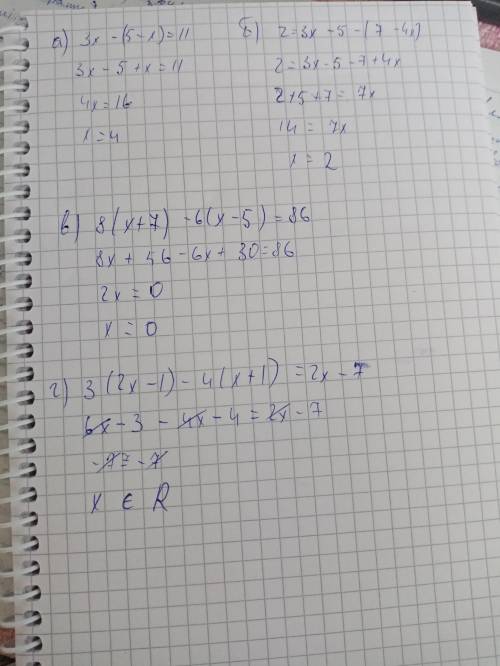 а) 3x - (5 - x) = 11
3x - 5 + x = 11
4x = 16
x = 4
б) 2 = 3x - 5 - (7 - 4x)
2 = 3x - 5 - 7 + 4x
2 + 5 + 7 = 7x
14 = 7x
x = 2
в) 8(x + 7) - 6(x - 5) = 86
8x + 56 - 6x + 30 = 86
2x = 0
x = 0
г) 3(2x - 1) - 4(x + 1) = 2x - 7
6x - 3 - 4x - 4 = 2x - 7
x ∈ R